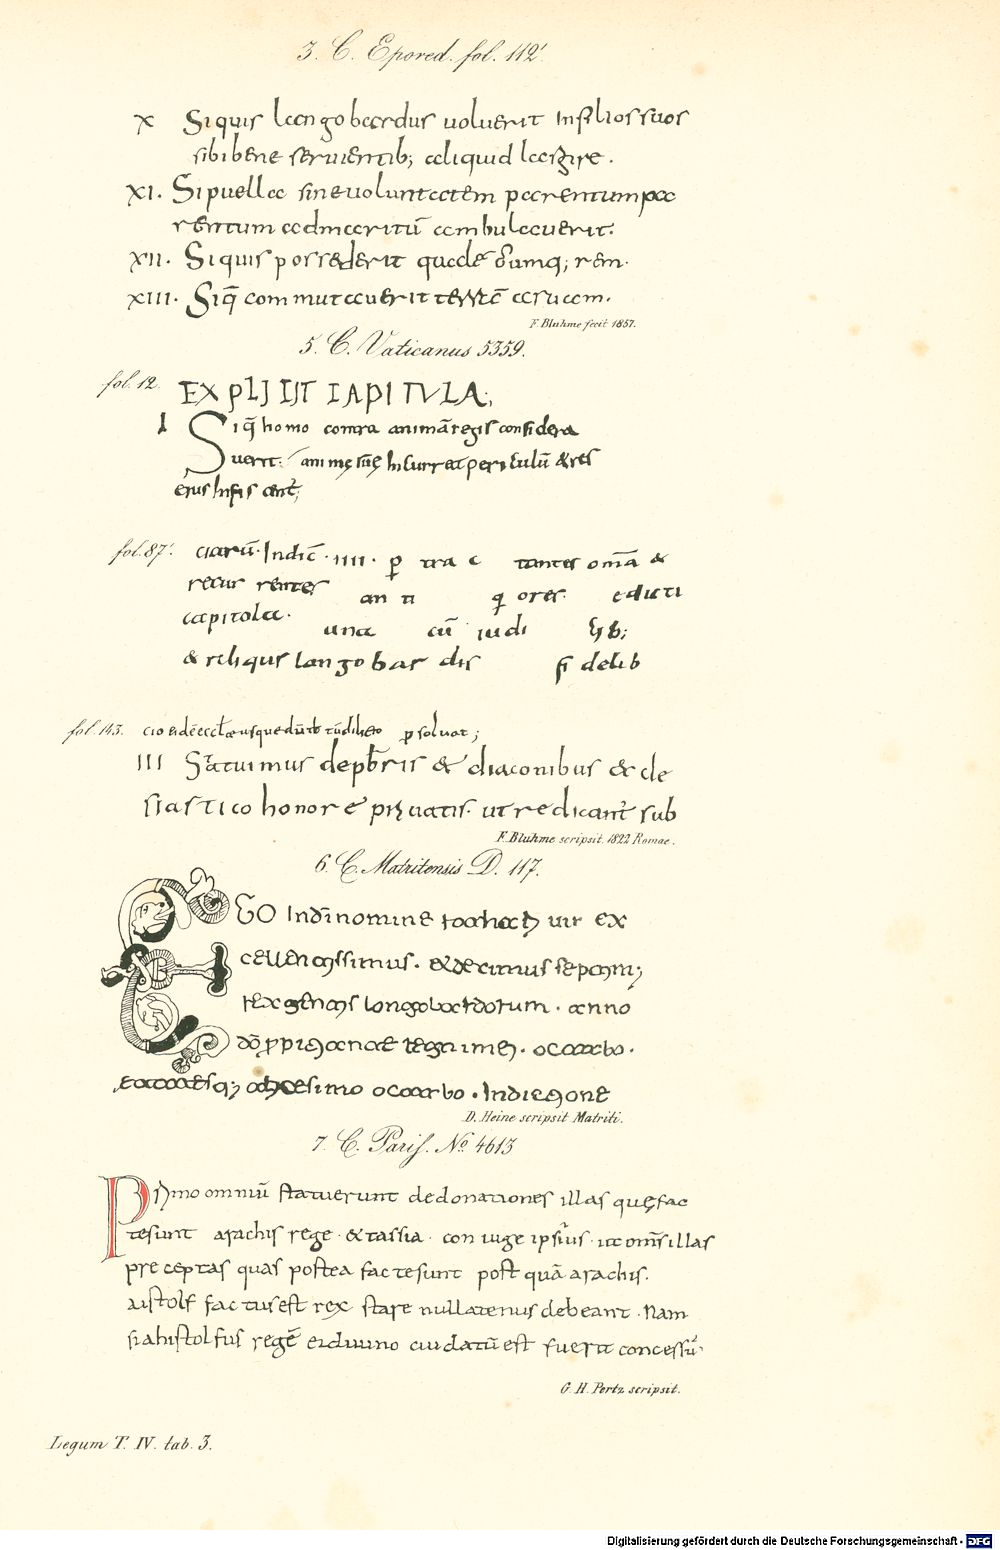 3. C. Epored. fol. 112'.
X Siquis langobardus uoluerit Infiliossuos
sibibene seruientib; aliquid largire.
XI. Sipuella sineuoluntatem parentumpa
rentum admaritū ambulauerit.
XII. Siquis possederit
XIII. Siq̄ commutauerit
F. Bluhme fecit 1857.
5. C. Vaticanus 5359.
fol. 12. EXPLIIST IAPITVLA;
I Siq̄ homo contra animā regis considera
uerit. animę suę Incurrat periculū & res
eius Infiscent̄;
fol. 87'. ciarū. Indic̄. IIII. p tra c tantes om̄a &
recur rentes an ti q ores. edicti
capitola. una cū iudi b;
& reliquis langobar dis fi delib
fol. 143. psoluat;
III Statuimus & diaconibus & cle
siastico honore ut redicant̄ sub
F. Bluhme scripsit. 1822 Romae.
6. C. Matritensis D. 117.
EGO In nomine uir ex
cellentissimus. septim;
rex gentis langobardorum. anno
. Indictione
D. Heine scripsit Matriti.
7. C. Paris. No 4613
Primo omniū statuerunt dedonationes illas quę fac
tesunt arachis rege. &tassia. coniuge ipsius. ut om̄s illas
preceptas quas postea factesunt post quā arachis.
aistolf factusest rex stare nullatenus debeant. Nam
siahistolfus regē cuidatū est fuerit concessū
G. H. Pertz scripsit.
Legum T. IV. tab. 3.
Digitalisierung gefördert durch die Deutsche Forschungsgemeinschaft - DFG